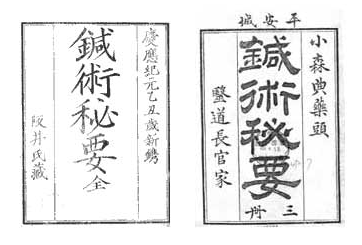 平安城
小森典藥頭
鍼術秘要
醫道長官家
三冊
慶應紀元乙丑歲新鐫
鍼術秘要全
阪井氏藏